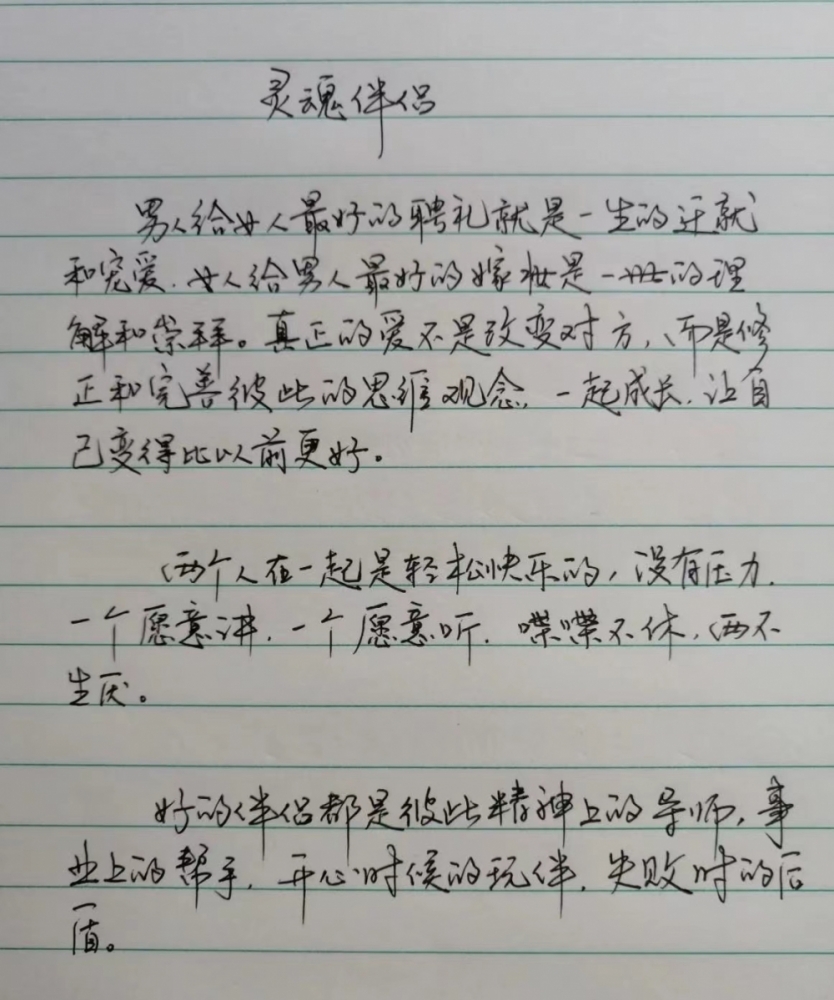 灵魂伴侣
男人给女人最好的聘礼就是一生的迁就
和宠爱.女人给男人最好的嫁妆是一世的理
解和崇拜。真正的爱不是改变对方,而是修
正和完善彼此的思维观念,一起成长.让自
己变得比以前更好。
两个人在一起是轻松快乐的,没有压力.
一个愿意讲.一个愿意听.喋喋不休.两不
生厌。
好的伴侣都是彼此精神上的导师.事
业上的帮手.开心时候的玩伴.失败时的后
盾。